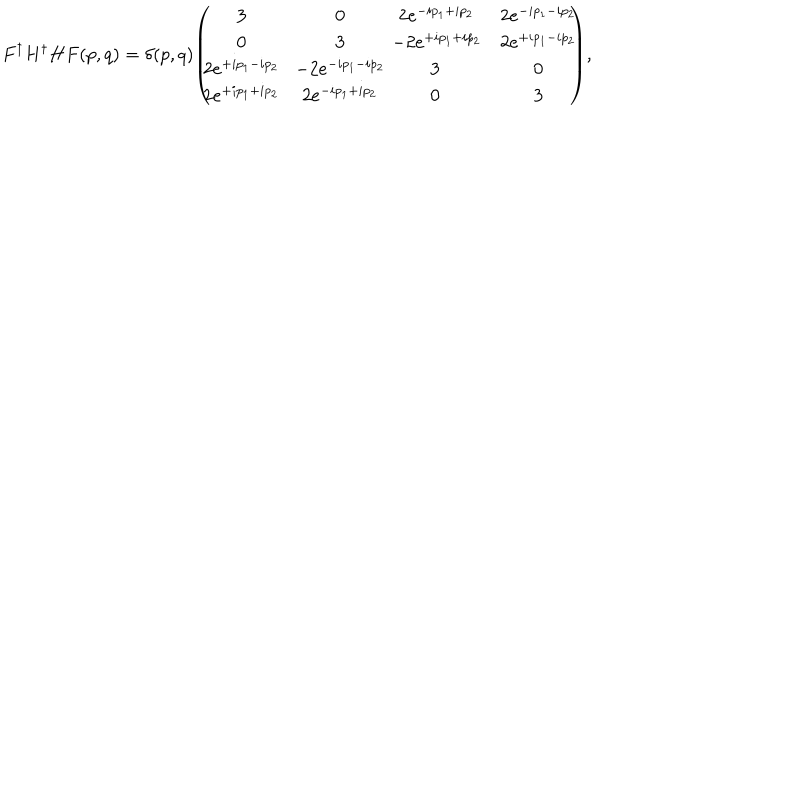 $F^{\dagger} H^{\dagger} H F(p,q) = \delta(p,q) \begin{pmatrix} 3 & 0 & 2e^{-ip_1+ip_2} & 2e^{-ip_1-ip_2} \\ 0 & 3 & -2e^{+ip_1+ip_2} & 2e^{+ip_1-ip_2} \\ 2e^{+ip_1-ip_2} & -2e^{-ip_1-ip_2} & 3 & 0 \\ 2e^{+ip_1+ip_2} & 2e^{-ip_1+ip_2} & 0 & 3 \end{pmatrix},$